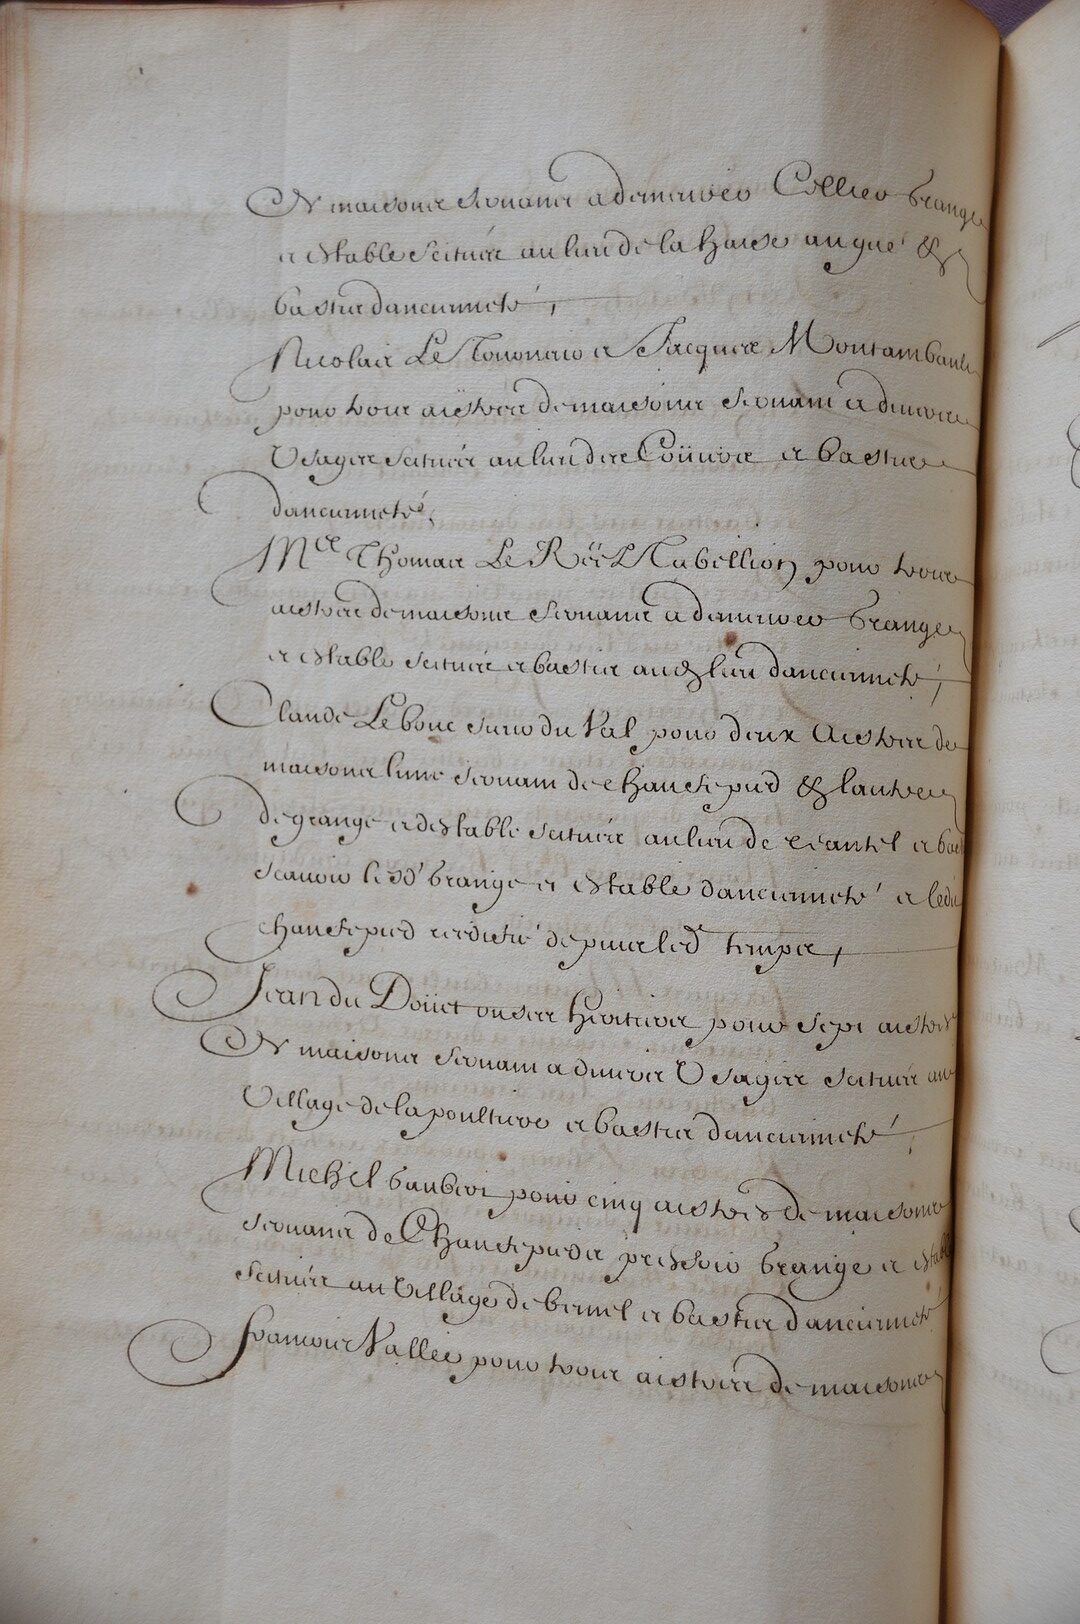 De maisons servans a demeurer Cellier Grange
et estable scituée au lieu de la haise au gué &
bastie d'ancienneté,
Nicolas Le Tonnerio et Jacques Montambault
pour trois aistres de maisons servant a divers
Usages scituées au lieu des et bastie
dancienneté,
Mre Thomas Le Rées Tabellion pour trois
aistres de maisons servans a demeurer Grange
et estable scituée et bastie audt lieu dancienneté,
Claude Le bouc sieur du Val pour deux aistres de
maisons lune servant de chauffepied & lautre
de grange et destable scituée au lieu de et bas
scavoir lesd Grange et estable d'ancienneté et ledit
chauffepied reedifié depuis led temps,
Jean du Doüet ou ses heritiers pour sept aistres
De maisons servant a divers Usages scituées au
Village de la poultiere et bastie dancienneté,
Michel pour cinq aistres de maisons
servans de Chauffepieds pressoir Grange et estable
scituée au Village de bernel et bastie dancienneté
francois Vallée pour trois aistres de maisons